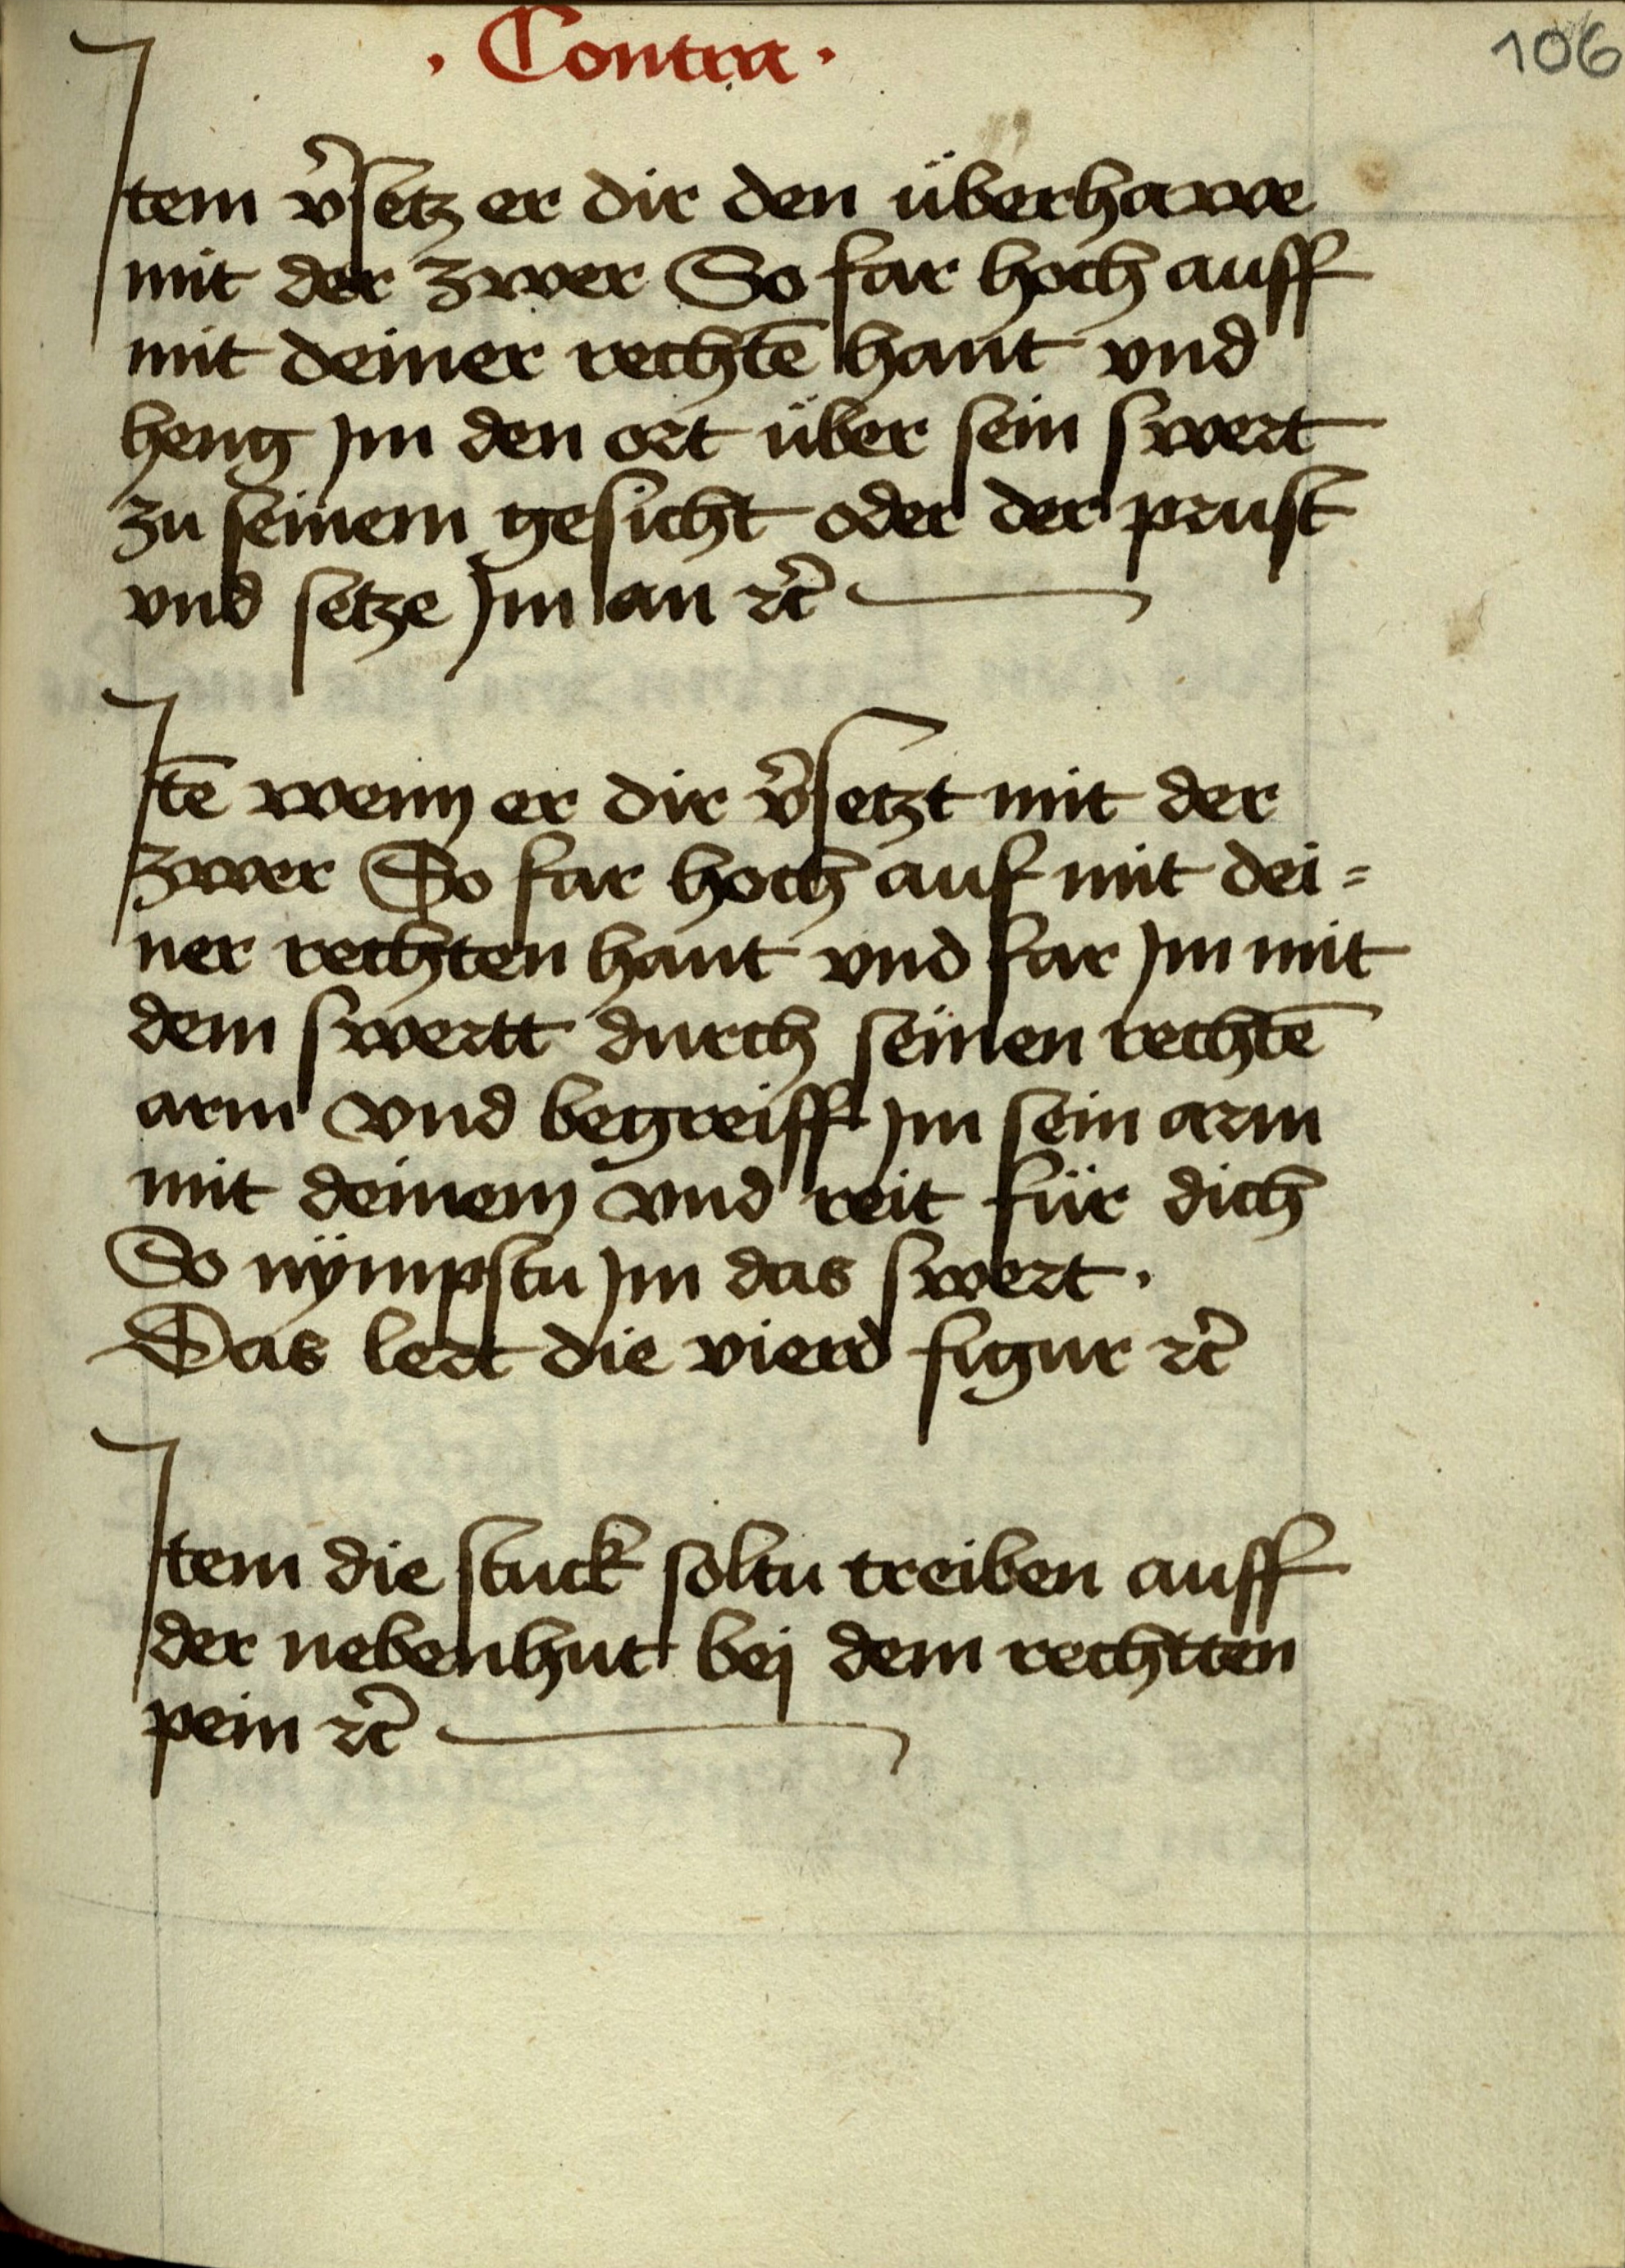 · Contra ·
106
Item v̉setz er dir den überhawe
mit der zwer So far hoch auff
mit deiner rechtē hant vnd
heng Jm den ort über sein swert
zu seinem gesicht oder der prust
vnd setze Jm an ꝛc̃
Itē wenn er dir v̉setzt mit der
zwer So far hoch auf mit dei=
ner rechten hant vnd far Jm mit
dem swertt durch seinen rechtē
arm vnd begreiff Jm sein arm
mit deinem vnd reit für dich
So nÿmpstu Jm das swert ·
Das lert die vierd figur ꝛc̃
Item die stuck soltu treiben auff
der nebenhut bej dem rechtten
pein ꝛc̃